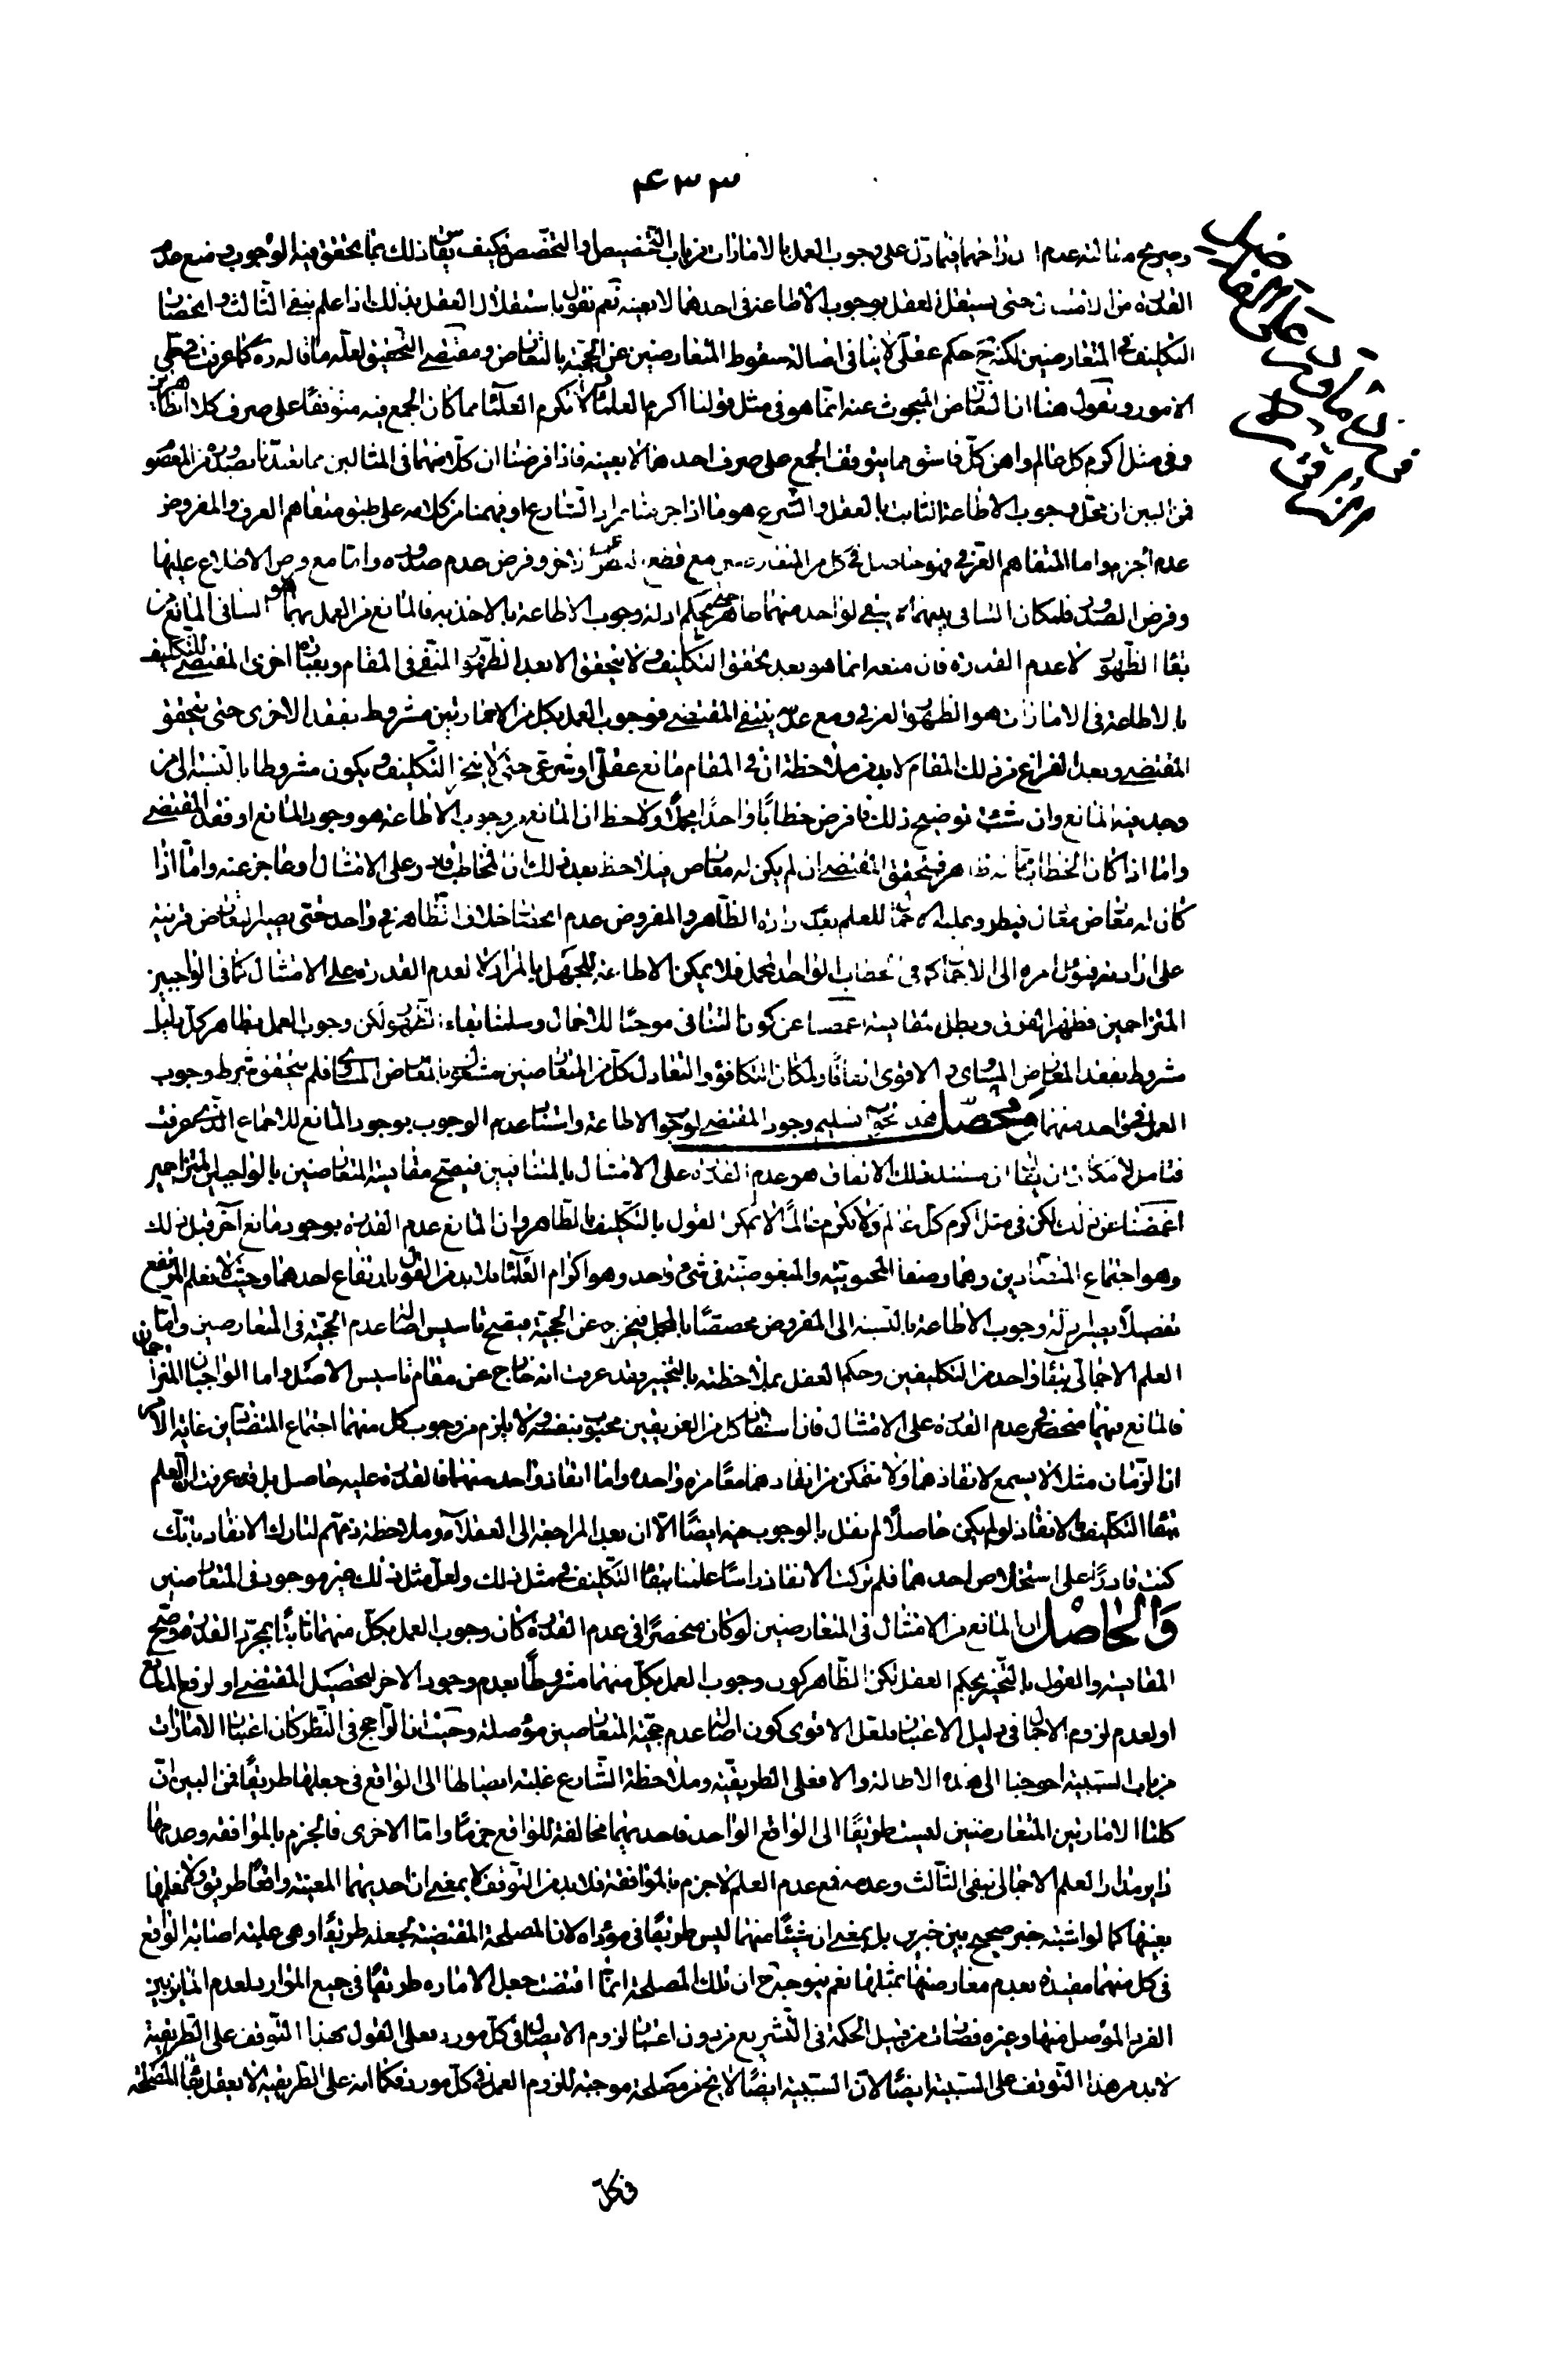 ۴۳۳
وصريح مقالته عدم اندراجهما فيما دل على وجوب العمل بالامارات من باب التخصيص او التخصص فكيف يقاس ذلك بما تحقق فيه الوجوب ومنع عدم
القدرة من الامتثال حتى يستقل العقل بوجوب الاطاعة فى احدهما لا بعينه نعم نقول باستقلال العقل بذلك اذا علم بنفى الثالث وانحصار
التكليف فى المتعارضين لكنه ح حكم عقلى لا ينافى اصالة سقوط المتعارضين عن الحجية بالتعارض ومقتضى التحقيق لعله ما قاله ره كما عرفت فى طى
الامور ونقول هنا ان التعارض المبحوث عنه انما هو فى مثل قولنا اكرم العلماء ولا تكرم العلماء مما كان الجمع فيه متوقفا على صرف كلا الظاهرين
وفى مثل اكرم كل عالم واهن كل فاسق مما يتوقف الجمع على صرف احدهما لا بعينه فاذا فرضنا ان كلا منهما فى المثالين مما تعبدنا بصدوره من المعصوم
فمن البين ان محل وجوب الاطاعة الثابت بالعقل والشرع هو ما اذا جزمنا بمراد الشارع او فهمنا من كلامه على طبق متفاهم العرف والمفروض
عدم الجزم واما المتفاهم العرفى فهو حاصل فى كل من المتعارضين مع قطع النظر عن الاخر وفرض عدم صدوره واما مع فرض الاطلاع عليها
وفرض الصدور فلمكان التنافى بينهما لا يبقى لواحد منهما ظاهر حتى يحكم ادلة وجوب الاطاعة بالاخذ به فالمانع من العمل بهما هو التنافى المانع من
بقاء الظهور لا عدم القدرة فان منعه انما هو بعد تحقق التكليف ولا يتحقق الا بعد الظهور المنتفى فى المقام وبعبارة اخرى المقتضى للتكليف
بالاطاعة فى الامارات هو الظهور العرفى ومع عدمه ينتفى المقتضى فوجوب العمل بكل من الامارتين مشروط بفقد الاخرى حتى يتحقق
المقتضى وبعد الفراغ عن ذلك المقام لا بد من ملاحظة ان فى المقام مانع عقلى او شرعى حتى لا يتنجز التكليف ويكون مشروطا بالنسبة الى من
وجد فيه المانع وان شئت توضيح ذلك فافرض خطابا واحدا مجملا ولاحظ ان المانع من وجوب الاطاعة هو وجود المانع او فقد المقتضى
واما اذا كان الخطاب مما له ظاهر فيتحقق المقتضى ان لم يكن له معارض فيلاحظ بعد ذلك ان المخاطب قادر على الامتثال او عاجز عنه واما اذا
كان له معارض مقارن فيطرء عليه الاجمال للعلم بعدم ارادة الظاهر والمفروض عدم انحصار خلاف الظاهر فى واحد حتى يصير التعارض قرينة
على ارادته فيؤل امره الى الاجمال كما فى الخطاب الواحد المجمل فلا يمكن الاطاعة للجهل بالمراد لا لعدم القدرة على الامتثال كما فى الواجبين
المتزاحمين فظهر الفرق وبطل مقايسته اغمضنا عن كون التنافى موجبا للاجمال وسلمنا بقاء الظهور لكن وجوب العمل بظاهر كل دليل
مشروط بفقد المعارض المساوى والاقوى اتفاقا ولمكان التكافؤ والتعادل كل من المتعارضين مشغول بالمعارض المساوى فلم يتحقق شرط وجوب
العمل فى واحد منهما فتحصل
فتامل لامكان ان يقال ان مستند ذلك الاتفاق هو عدم القدرة على الامتثال بالمتنافيين فيصح مقايسة المتعارضين بالواجبين المتزاحمين
اغمضنا عن ذلك لكن فى مثل اكرم كل عالم ولا تكرم عالما لا يمكن القول بالتكليف بالظاهر وان المانع عدم القدرة بوجود مانع آخر قبل ذلك
وهو اجتماع المتضادين وهما وصفا المحبوبية والمبغوضية فى شئ واحد وهو اكرام العلماء فلا بد من القول بارتفاع احدهما وحيث لا نعلم المرتفع
تفصيلا يصير ادلة وجوب الاطاعة بالنسبة الى المفروض مخصصا بالمجمل فيخرج عن الحجية فيصح تاسيس اصالة عدم الحجية فى المتعارضين واما
العلم الاجمالى ببقاء واحد من التكليفين وحكم العقل بملاحظته بالتخيير فقد عرفت انه خارج عن مقام تاسيس الاصل واما الواجبان المتزاحمان
فالمانع فيهما منحصر فى عدم القدرة على الامتثال فان استنقاذ كل من الغريقين محبوب بنفسه ولا يلزم من وجوب كل منهما اجتماع المتضادين غاية الامر
ان الزمان مثلا لا يسع لانقاذهما ولا نتمكن من انقاذهما معا مرة واحدة واما انقاذ واحد منهما فالقدرة عليه حاصل بل قد عرفت ان العلم
ببقاء التكليف بالانقاذ لو لم يكن حاصلا لم نقل بالوجوب فيه ايضا الا ان بعد المراجعة الى العقلاء وملاحظة ذمهم لتارك الانقاذ بانك
كنت قادرا على استخلاص احدهما فلم تركت الانقاذ راسا علمنا ببقاء التكليف فى مثل ذلك ولعل مثل ذلك غير موجود فى المتعارضين
والحاصل ان المانع من الامتثال فى المتعارضين لو كان منحصرا فى عدم القدرة كان وجوب العمل بكل منهما ثابتا بمجرد القدرة وصح
المقايسة والقول بالتخيير بحكم العقل لكن الظاهر كون وجوب العمل بكل منهما مشروطا بعدم وجود الاخر لتحصيل المقتضى او لرفع المانع
او لعدم لزوم الاجمال فى دليل الاعتبار فلعل الاقوى كون اصالة عدم حجية المتعارضين مؤصلة وحيث ان الراجح فى النظر كان اعتبار الامارات
من باب السببية احوجنا الى هذه الاطالة والا فعلى الطريقية وملاحظة الشارع غلبة ايصالها الى الواقع فى جعلها طريقا فمن البين ان
كلتا الامارتين المتعارضتين ليست طريقا الى الواقع الواحد فاحديهما مخالفة للواقع جزما واما الاخرى فالجزم بالموافقة وعدمها
داير مدار العلم الاجمالى بنفى الثالث وعدمه فمع عدم العلم لا جزم بالموافقة فلا بد من التوقف لا بمعنى ان احديهما المعينة واقعا طريق ولا نعلمها
بعينها كما لو اشتبه خبر صحيح بين خبرين بل بمعنى ان شيئا منهما ليس طريقا فى مؤداه لان المصلحة المقتضية لجعله طريقا وهى غلبة اصابة الواقع
فى كل منهما مقيدة بعدم معارضتها بمثلها نعم يتوجه ح ان تلك المصلحة انما اقتضت جعل الامارة طريقا فى جميع الموارد لعدم المايز بين
الفرد المؤصل منها وغيره فصارت من قبيل الحكمة فى التشريع من دون اعتبار لزوم الايصال فى كل مورد فعلى القول بهذا التوقف على الطريقية
لا بد من هذا التوقف على السببية ايضا لان السببية ايضا لا يخ من مصلحة موجبة للزوم العمل فى كل مورد فكما انه على الطريقية لا يعقل بقاء المصلحة
فى كل